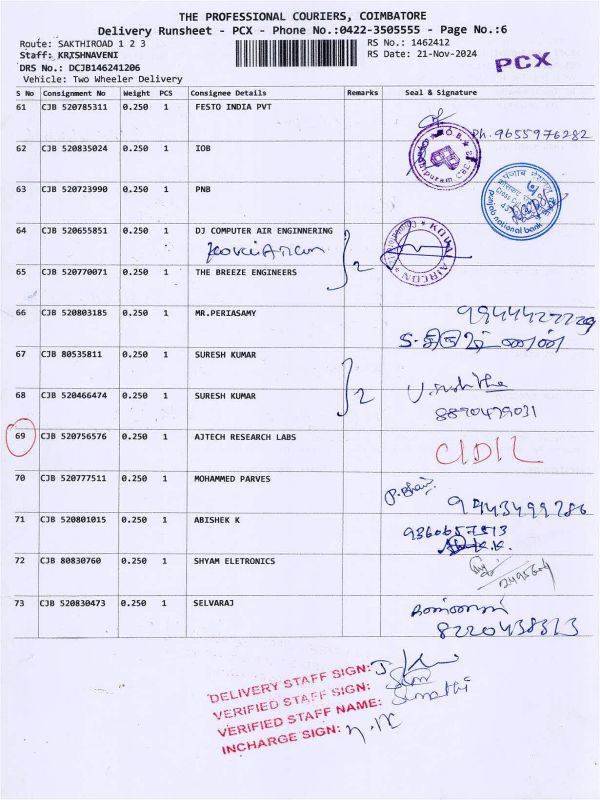 THE PROFESSIONAL COURIERS, COIMBATORE
Delivery Runsheet - PCX - Phone No.:0422-3505555 - Page No.:6
Route: SAKTHIROAD 1 2 3
Staff: KRISHNAVENI
DRS No.: DCJB146241206
Vehicle: Two Wheeler Delivery
RS No.: 1462412
RS Date: 21-Nov-2024
PCX
S No Consignment No Weight PCS Consignee Details Remarks Seal & Signature
61 CJB 520785311 0.250 1 FESTO INDIA PVT
Ph. 9655976282
62 CJB 520835024 0.250 1 IOB
63 CJB 520723990 0.250 1 PNB
punjab national bank
64 CJB 520655851 0.250 1 DJ COMPUTER AIR ENGINNERING
Kovai Aircon 2
KOVAI AIRCON
65 CJB 520770071 0.250 1 THE BREEZE ENGINEERS
66 CJB 520803185 0.250 1 MR.PERIASAMY
67 CJB 80535811 0.250 1 SURESH KUMAR
2
68 CJB 520466474 0.250 1 SURESH KUMAR
8870479031
69 CJB 520756576 0.250 1 AJTECH RESEARCH LABS
70 CJB 520777511 0.250 1 MOHAMMED PARVES
9443499286
71 CJB 520801015 0.250 1 ABISHEK K
9360657513
72 CJB 80830760 0.250 1 SHYAM ELETRONICS
73 CJB 520830473 0.250 1 SELVARAJ
8220438313
DELIVERY STAFF SIGN:
VERIFIED STAFF SIGN:
VERIFIED STAFF NAME:
INCHARGE SIGN: